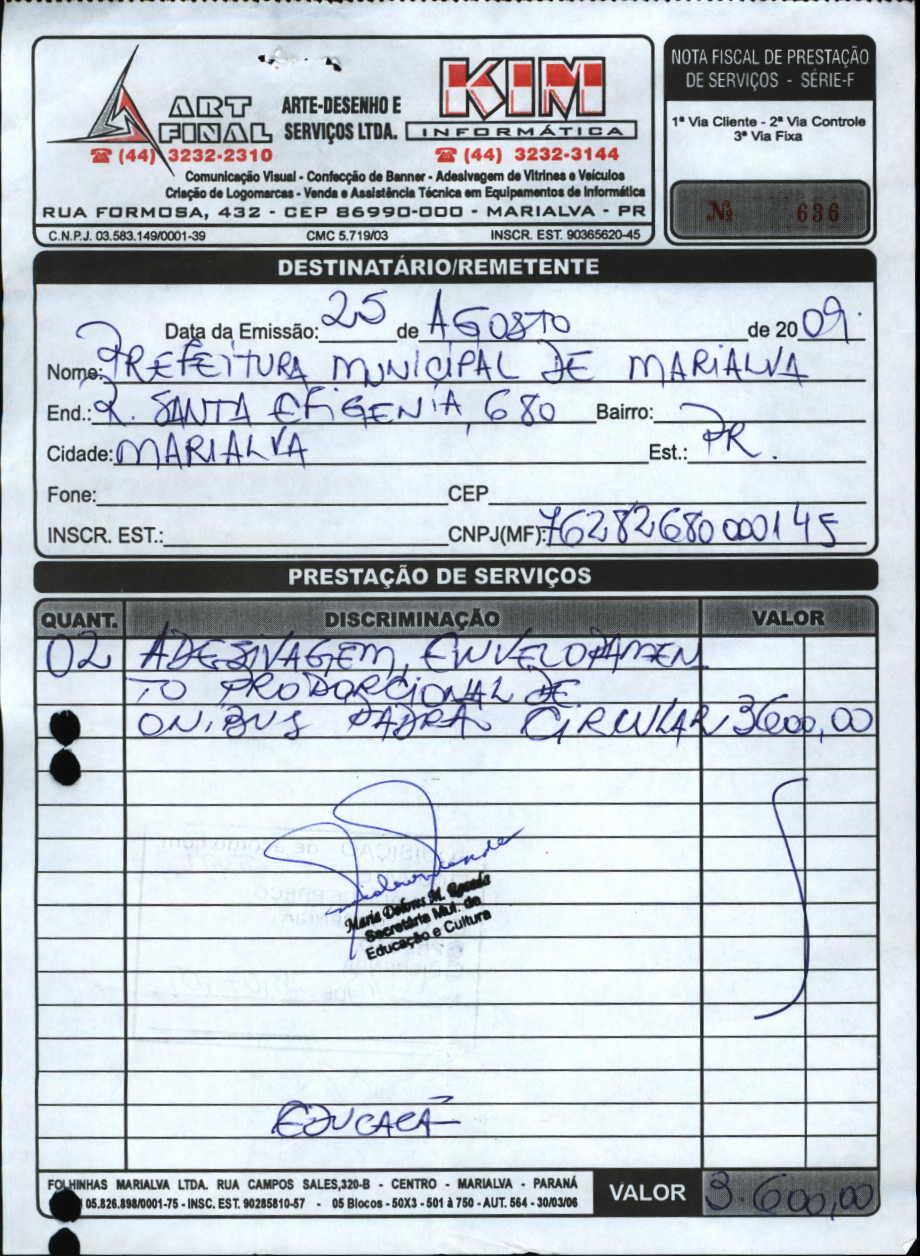 ART FINAL
ARTE-DESENHO E SERVIÇOS LTDA.
KIM INFORMÁTICA
(44) 3232-2310
(44) 3232-3144
Comunicação Visual - Confecção de Banner - Adesivagem de Vitrines e Veículos
Criação de Logomarcas - Venda e Assistência Técnica em Equipamentos de Informática
RUA FORMOSA, 432 - CEP 86990-000 - MARIALVA - PR
C.N.P.J. 03.583.149/0001-39 CMC 5.719/03 INSCR. EST. 90365620-45
NOTA FISCAL DE PRESTAÇÃO
DE SERVIÇOS - SÉRIE-F
1ª Via Cliente - 2ª Via Controle
3ª Via Fixa
Nº 636
DESTINATÁRIO/REMETENTE
Data da Emissão: 25 de AGOSTO de 2009.
Nome: PREFEITURA MUNICIPAL DE MARIALVA
End.: R. SANTA EFIGENIA, 680 Bairro:
Cidade: MARIALVA Est.: PR.
Fone: CEP
INSCR. EST.: CNPJ(MF): 76282680000145
PRESTAÇÃO DE SERVIÇOS
QUANT. DISCRIMINAÇÃO VALOR
02 ADESIVAGEM, ENVELOPAMEN
TO PROPORCIONAL DE
ONIBUS PADRÃO CIRCULAR 3600,00
Secretária Mul. de
Educação e Cultura
EDUCAÇÃO
FOLHINHAS MARIALVA LTDA. RUA CAMPOS SALES,320-B - CENTRO - MARIALVA - PARANÁ
05.826.898/0001-75 - INSC. EST. 90285810-57 - 05 Blocos - 50X3 - 501 à 750 - AUT. 564 - 30/03/06
VALOR 3.600,00